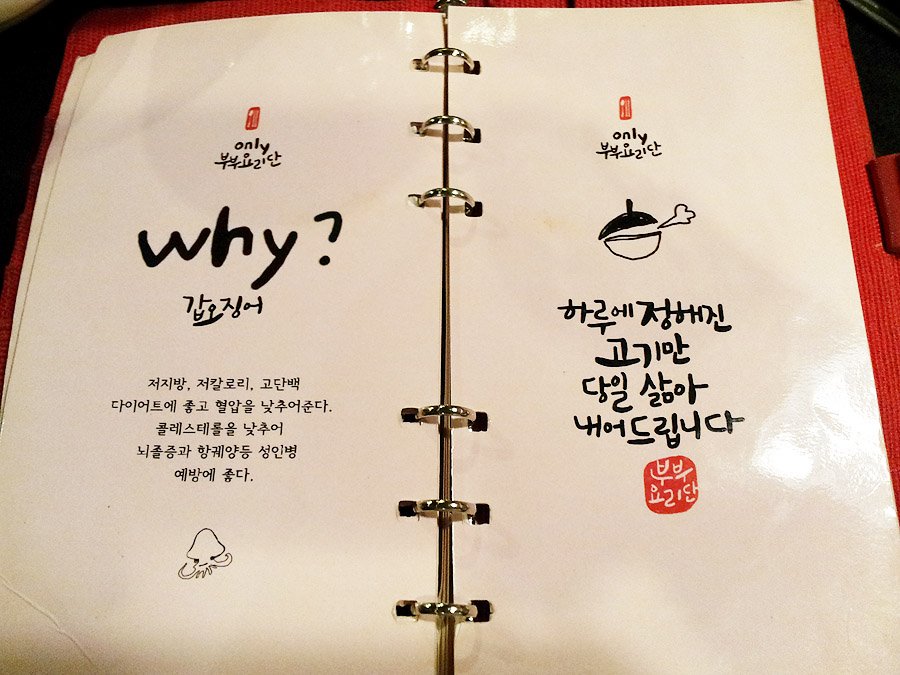 only
부부요리단
why?
갑오징어
저지방, 저칼로리, 고단백
다이어트에 좋고 혈압을 낮추어준다.
콜레스테롤을 낮추어
뇌졸증과 항궤양등 성인병
예방에 좋다.
only
부부요리단
하루에 정해진
고기만
당일 삶아
내어드립니다
부부
요리단